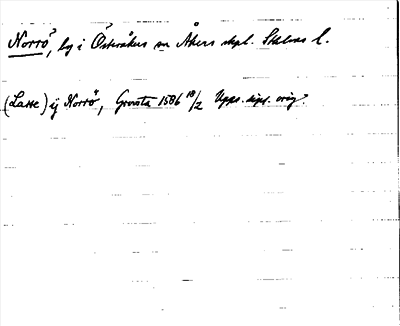 Norrö, by i Österåkers sn Åkers skpl. Sthlms l.
(Lasse) ij Norrö, Gronsta 1506 18/2 Upps. dipl. orig.